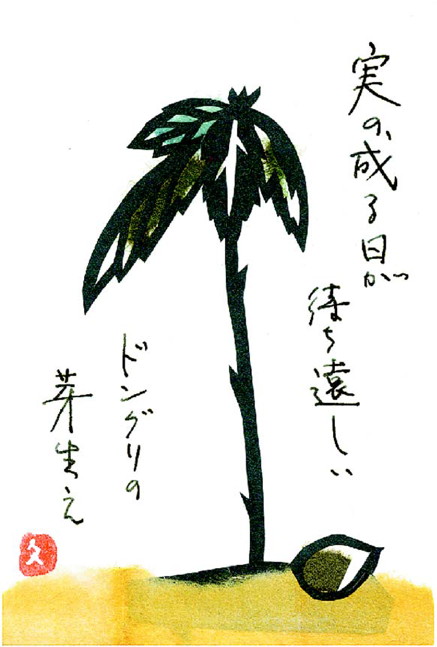 実の成る日が
待ち遠しい
ドングリの
芽生え
久